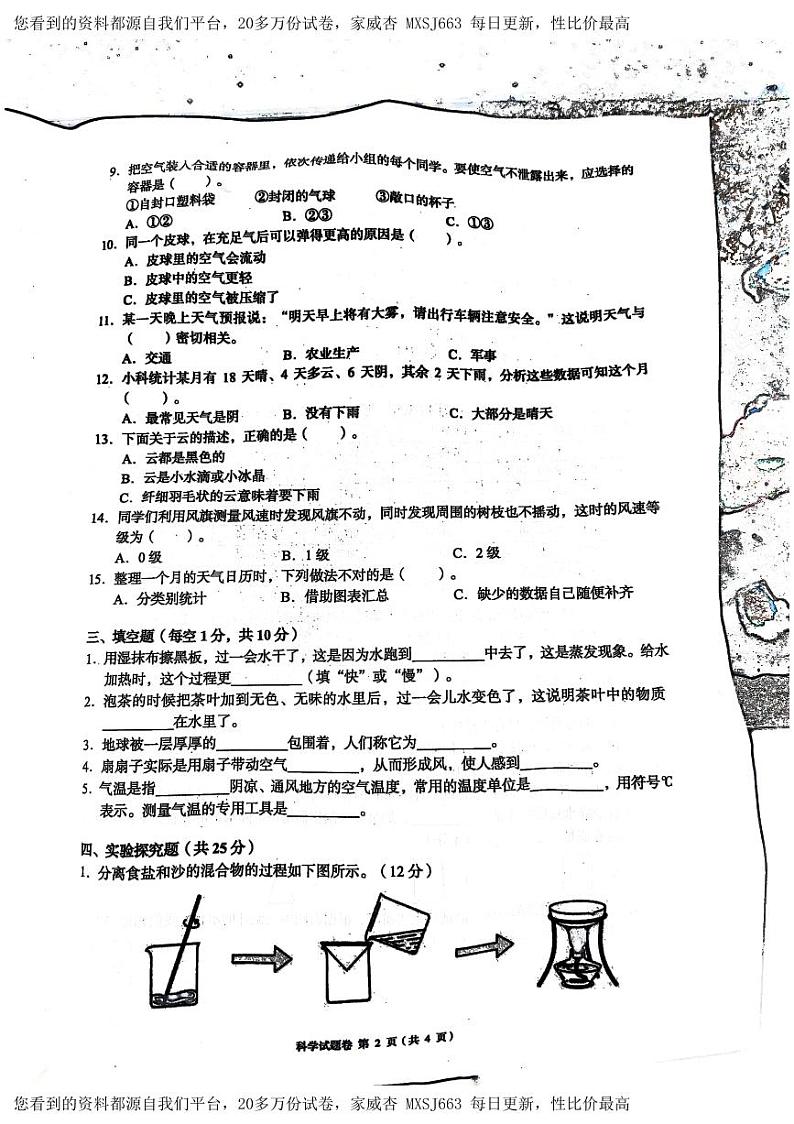 您看到的资料都源自我们平台，20多万份试卷，家威杏 MXSJ663 每日更新，性比价最高
9. 把空气装入合适的容器里，依次传递给小组的每个同学。要使空气不泄露出来，应选择的
容器是（　　）。
①自封口塑料袋　②封闭的气球　③敞口的杯子
A. ①②　B. ②③　C. ①③
10. 同一个皮球，在充足气后可以弹得更高的原因是（　　）。
A. 皮球里的空气会流动
B. 皮球中的空气更轻
C. 皮球里的空气被压缩了
11. 某一天晚上天气预报说：“明天早上将有大雾，请出行车辆注意安全。”这说明天气与
（　　）密切相关。
A. 交通　B. 农业生产　C. 军事
12. 小科统计某月有 18 天晴、4 天多云、6 天阴，其余 2 天下雨，分析这些数据可知这个月
（　　）。
A. 最常见天气是阴　B. 没有下雨　C. 大部分是晴天
13. 下面关于云的描述，正确的是（　　）。
A. 云都是黑色的
B. 云是小水滴或小冰晶
C. 纤细羽毛状的云意味着要下雨
14. 同学们利用风旗测量风速时发现风旗不动，同时发现周围的树枝也不摇动，这时的风速等
级为（　　）。
A. 0级　B. 1级　C. 2级
15. 整理一个月的天气日历时，下列做法不对的是（　　）。
A. 分类别统计　B. 借助图表汇总　C. 缺少的数据自己随便补齐
三、填空题（每空1分，共10分）
1. 用湿抹布擦黑板，过一会水干了，这是因为水跑到________中去了，这是蒸发现象。给水
加热时，这个过程更________（填“快”或“慢”）。
2. 泡茶的时候把茶叶加到无色、无味的水里后，过一会儿水变色了，这说明茶叶中的物质
________在水里了。
3. 地球被一层厚厚的________包围着，人们称它为________。
4. 扇扇子实际是用扇子带动空气________，从而形成风，使人感到________。
5. 气温是指________阴凉、通风地方的空气温度，常用的温度单位是________，用符号℃
表示。测量气温的专用工具是________。
四、实验探究题（共25分）
1. 分离食盐和沙的混合物的过程如下图所示。（12分）
科学试题卷 第 2 页（共 4 页）
您看到的资料都源自我们平台，20多万份试卷，家威杏 MXSJ663 每日更新，性比价最高